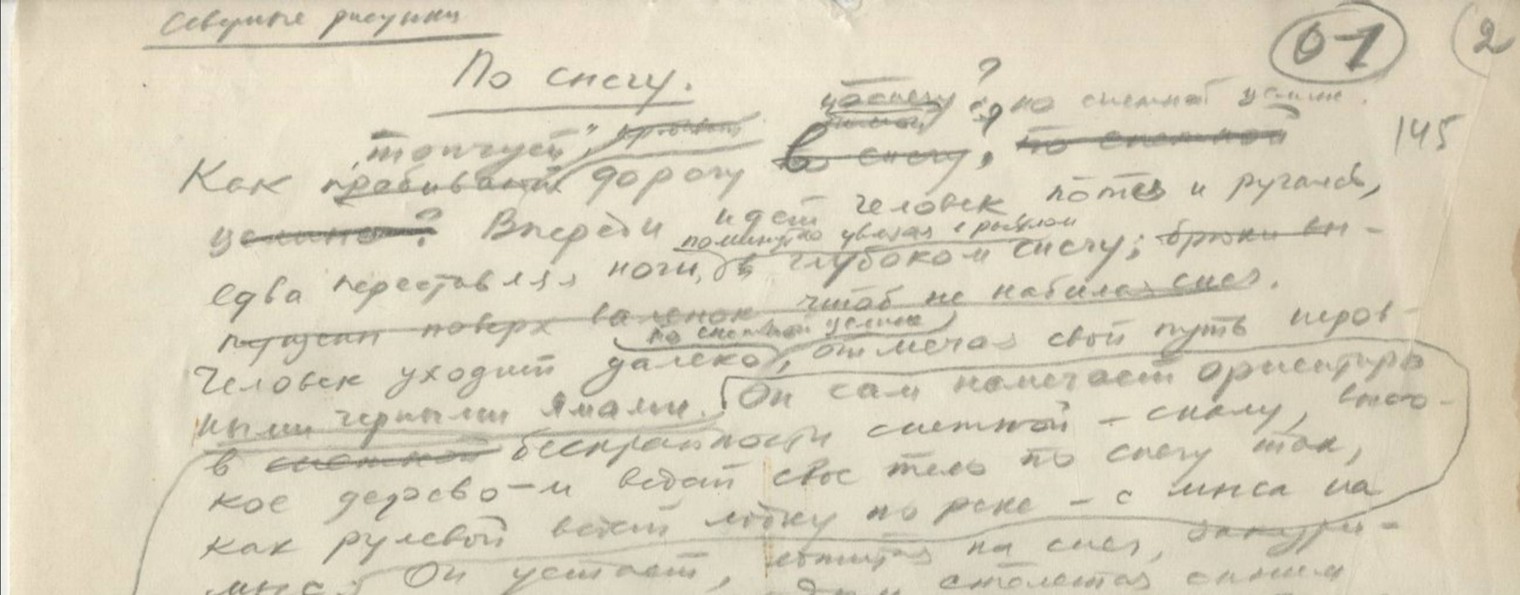 Северные рисунки
01 2
По снегу.
145
по снегу ? по снежной целине.
"топчут",
Как пробивают дорогу в снегу, по снежной
целине? Впереди идет человек потея и ругаясь,
поминутно увязая в рыхлом
едва переставляя ноги, в глубоком снегу; брюки вы-
пущены поверх валенок чтоб не набилась снег.
по снежной целине
Человек уходит далеко, отмечая свой путь неров-
ными черными ямами. Он сам намечает ориентиры
в снежной бескрайности снежной - скалу, высо-
кое дерево - и ведет свое тело по снегу так,
как рулевой ведет лодку по реке - с мыса на
мыс. Он устает, ложится на снег, закури-